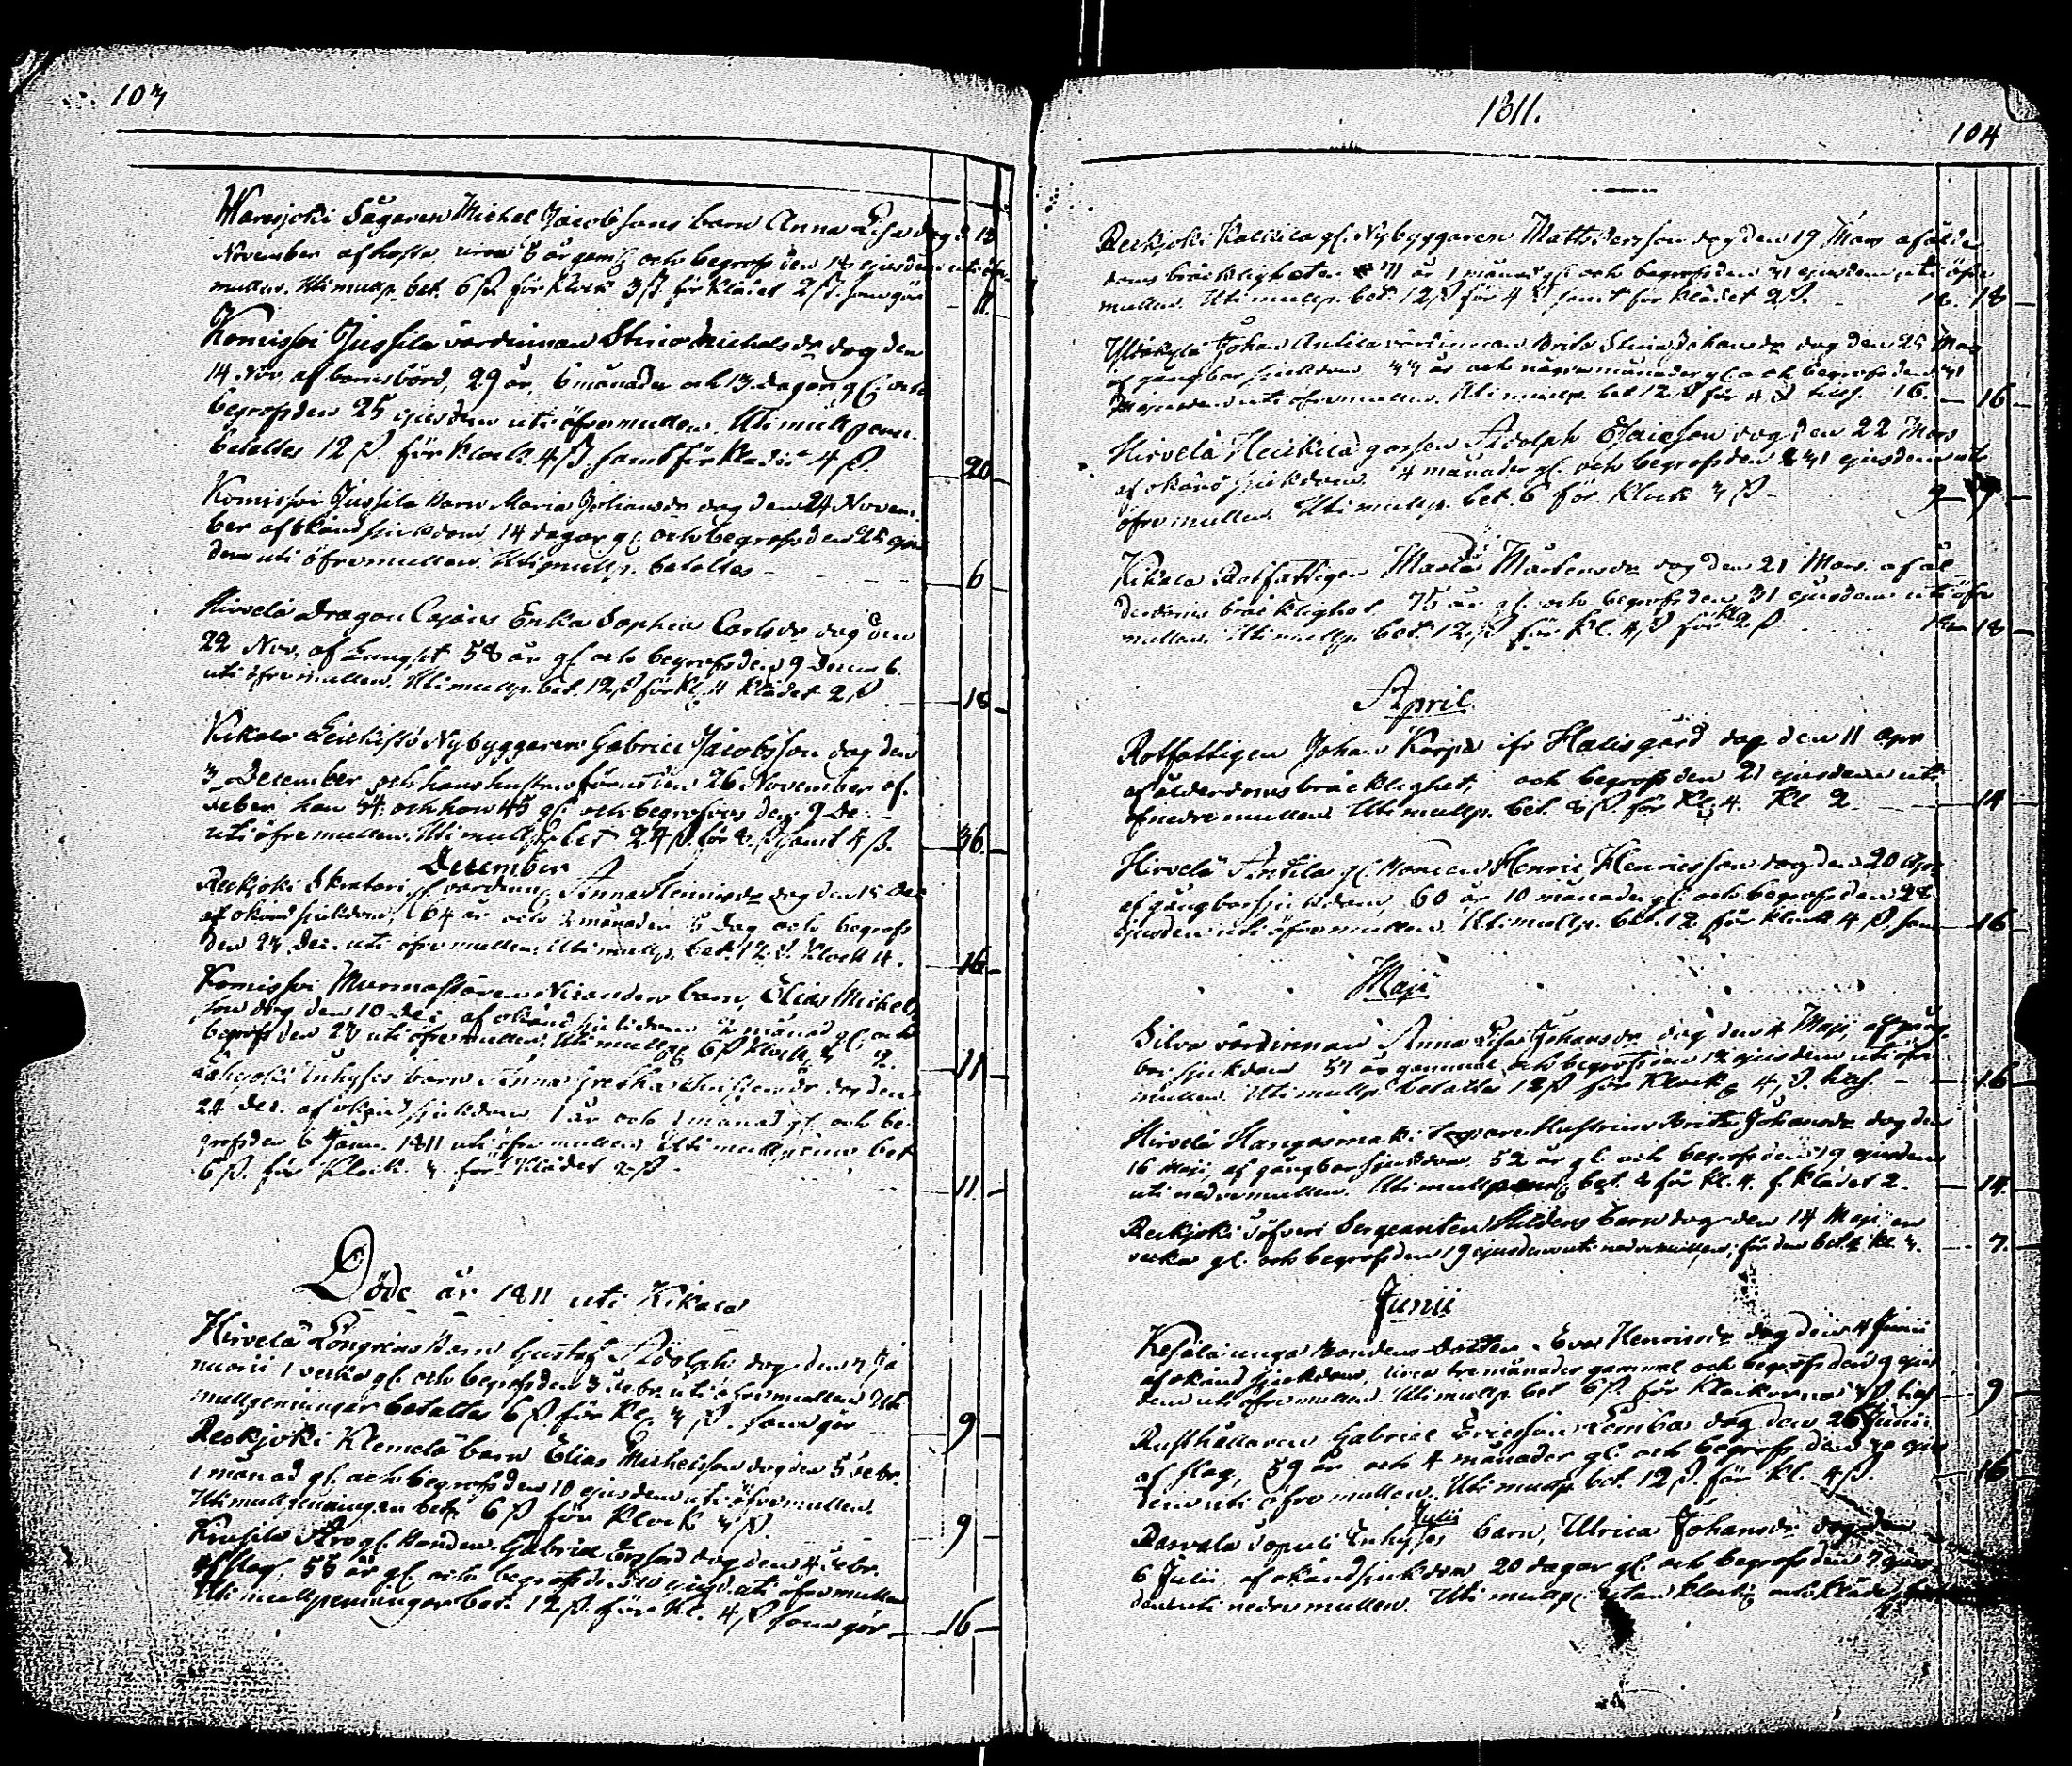 103
Waresjoki Sågaren Michel Jacobssons barn Anna Lisa dog d. 13
November af hosta circa 8 år gam. och begrofs den 14 ejusdem uti öfre
mullen. Uti mullp. bet. 6 ß för klock 3 ß för klädet 2 ß. som gör 11.
Komissoi Jussila värdinnan Stina Michelsdr dog den
14 Nov. af barnsbörd, 29 år, 6 månader och 13 dagar gl. och
begrofs den 25 ejusdem uti öfremullen. Uti mullpenn.
betaltes 12 ß för klock. 4 ß samt för klädet 4 ß. 20
Komissoi Jussila barn Maria Johansdr dog den 24 Novem-
ber af okänd sjukdom, 14 dagar gl. och begrofs den 25 ejus
dem uti öfremullen. Uti mullp. betaltes 6
Hirvelä Dragon Cajans Erika Sophia Carlsdr dog den
22 Nov. af Lungsot 58 år gl. och begrofs den 9 Decemb.
uti öfremullen. Uti mullp. bet. 12 ß för kl. 4 klädet 2 ß 18
Kikala Nybyggaren Gabriel Jacobsson dog den
3 December och hans hustru förut den 26 November af
feber han 54 och hon 45 gl. och begrofvos den 9 De:
uti öfre mullen. Uti mullp. bet 24 ß för 8. ß samt 4 ß. 36.
December
Reckjoki gl. värdinn. Anna Henricsdr dog den 15 Dec
af okänd sjukdom, 64 år och 2 månader 5 dag. och begrofs
den 23 Dec. uti öfremullen. Uti mullp. bet. 12 ß. klock 4. 16
Komissoi barn, Elias Michels
son dog den 10 Dec af okänd sjukdom 2 månad gl. och
begrofs den 26 uti öfremullen. Uti mullp. 6 ß klock. 3 2. 11
Inhyses barn Anna Greta dog den
24 Dec. af okänd sjukdom 1 år och 1 månad gl. och be-
grofs den 6 Janu. 1811 uti öfre mullen. Uti mullpenn. bet
6 ß. för klock. 3. för klädet 2 ß. 11.
Döde år 1811 uti Kikala
Hirvelä Löngrens barn Gustaf Adolph dog den 3 Ja
nuarii 1 vecka gl. och begrofs den 3 Febr. uti öfremullen Uti
mullpeningar betaltes 6 ß för kl. 3 ß. som gör 9
Reckjoki Klemelä barn Elias Michelsson dog den 5 Febr.
1 månad gl. och begrofs den 10 ejusdem uti öfremullen.
Uti mullpenningen bet. 6 ß för klock 3 ß. 9
gl. Bonden Gabriel Ersson dog den 4 Febr.
af slag, 55 år gl. och begrofs den 10 ejusd. uti öfremullen
Uti mullpenningar bet. 12 ß. för kl. 4 ß som gör 16
1811.
104
Reckjoki Kalkila gl. Nybyggaren Matts Persson dog den 19 Mars af ålder-
doms bräcklighet 71 år 1 månad gl. och begrofs den 31 ejusdem uti öfre
mullen. Uti mullp. bet. 12 ß för 4 ß samt för klädet 2 ß. 18. 18
Yldäkylä Johan Antila värdinnan Brita Stina Johansdr dog den 25 Mars
af gångbar sjukdom 33 år och några månader gl. och begrofs den 31
ejusdem uti öfremullen. Uti mullp. bet 12 ß för 4 ß tills. 16. 16
Hirvelä Heickilä gossen Adolph Isaacson dog den 22 Mars
af okänd sjukdom 4 månader gl. och begrofs den 31 ejusdem uti
öfremullen. Uti mullp. bet. 6 för klock 3 ß 9 9
Kikala Rotfattigen Maria Mårtensdr dog den 21 Mars af ål
derdoms bräcklighet 75 år gl. och begrofs den 31 ejusdem uti öfre
mullen. Uti mullp. bet. 12 ß för kl. 4 ß för kl. 2 ß 18
April
Rotfattigen Johan Korpi ifr. Halisgård dog den 11 Apr
af ålderdoms bräcklighet, och begrofs den 21 ejusdem uti
nedre mullen. Uti mullp. bet. 8 ß för kl. 4. Kl 2 14
Hirvelä Antila gl. Bonden Henric Henricsson dog den 20 Apr.
af gångbar sjukdom, 60 år 10 månader gl. och begrofs den 28
ejusdem uti öfremullen. Uti mullp. bet. 12 för klock 4 ß. som 16
Maji
Silva värdinnan Anna Lisa Johansdr dog den 4 Maji, af gång-
bar sjukdom 57 år gammal och begrofs den 12 ejusdem uti öfre
mullen. Uti mullp. betaltes 12 ß för klock. 4 ß. tils. 16
Hirvelä Hangasmäki Hustrun Brita Johansdr dog den
16 Maji, af gångbar sjukdom 52 år gl. och begrofs den 19 ejusdem
uti nedremullen. Uti mullpenn. bet. 8 för kl. 4. f. klädet 2. 14.
Reckjoki Söfveri Sergeanten barn dog den 14 Maji en
vecka gl. och begrofs den 19 ejusdem uti nedremullen, för den bet. 4 kl 3. 7.
Junii
Kesälä unga Bondens dotter Eva Henricsdr dog den 4 Junii
af okänd sjukdom, circa tre månader gammal och begrofs den 9 ejus
dem uti öfremullen. Uti mullp. bet 6 ß. för klockorna 3 ß tils 9
Rusthållaren Gabriel Ericsson Lemba dog den 26 Junii
af slag, 59 år och 4 månader gl. och begrofs den 30 ejus
dem uti öfre mullen. Uti mullp. bet. 12 ß. för kl. 4 ß. 16
Julii
Rasvala Inhyses barn, Ulrica Johansdr dog den
6 Julii af okänd sjukdom 20 dagar gl. och begrofs den 7 ejus
dem uti nedre mullen. Uti mullp. utan klock. och kläde